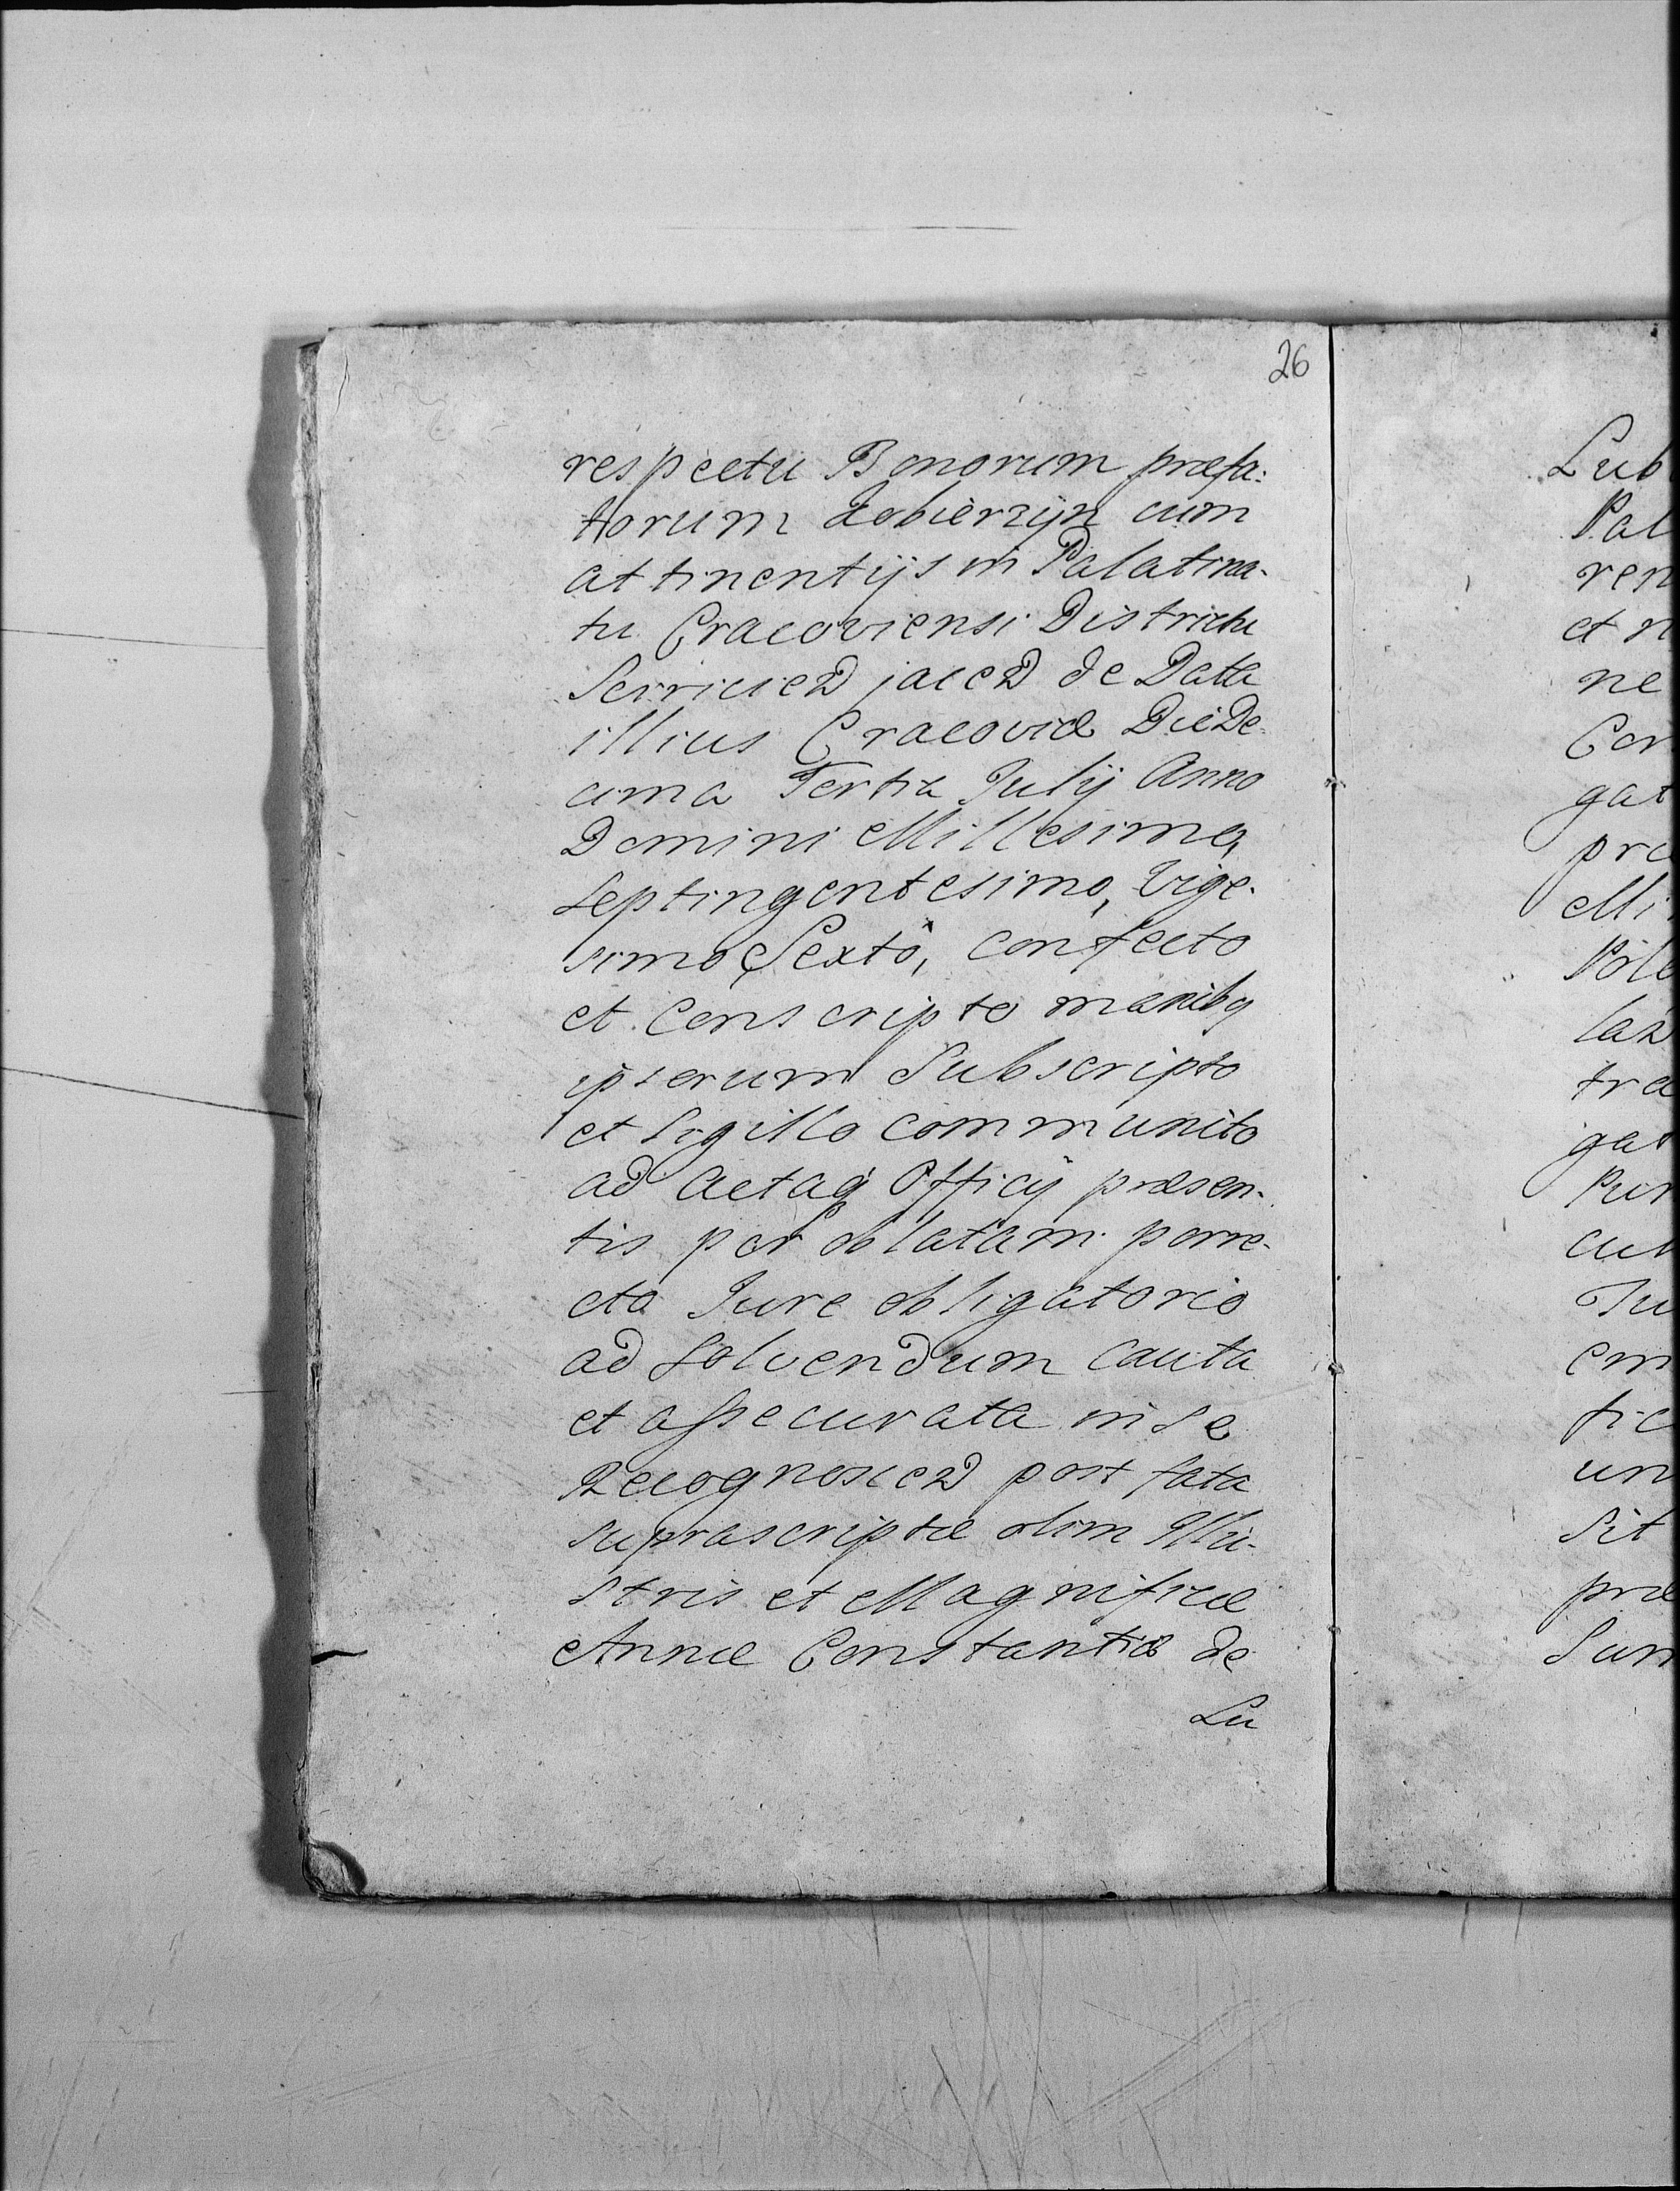 26
respectu Bonorum præfa:
torum Kobierzyn cum
attinentijs in Palatina-
tu Cracoviensi Districtu
Sciricien jacen de Data
illius Cracoviæ Die De-
cima Tertia Julij Anno
Domini Millesimo,
Septingentesimo, Vige-
simo Sexto, confecto
et Conscripto manibq
ipsorum Subscripto
et Sigillo communito
ad Actaq Officij præsen-
tis per oblatam porre-
cto Jure obligatorio
ad Solvendum Cauta
et assecurata in se
Recognoscen post fata
suprascriptæ olim Illu-
stris et Magnificæ
Annæ Constantiæ de
Lu
Lub
Pal
ren
et n
ne
Con
gat
præ
Mi
Pole
las
tra
gat
Pur
cul
Ju
em
fic
un
Sit
præ
Sum